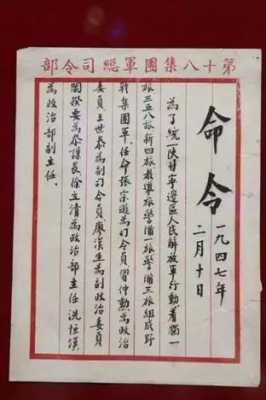 第十八集團軍總司令部
命令
一九四七年
二月十日
為了統一陝甘寧邊區人民解放軍行動着獨一
旅三五八旅新四旅教導旅警備一旅警備三旅組成野
戰集團軍。任命張宗遜為司令員習仲勳為政治
委員王世泰為副司令員廖漢生為副政治委員
閻揆要為參謀長徐立清為政治部主任冼恒漢
為政治部副主任。